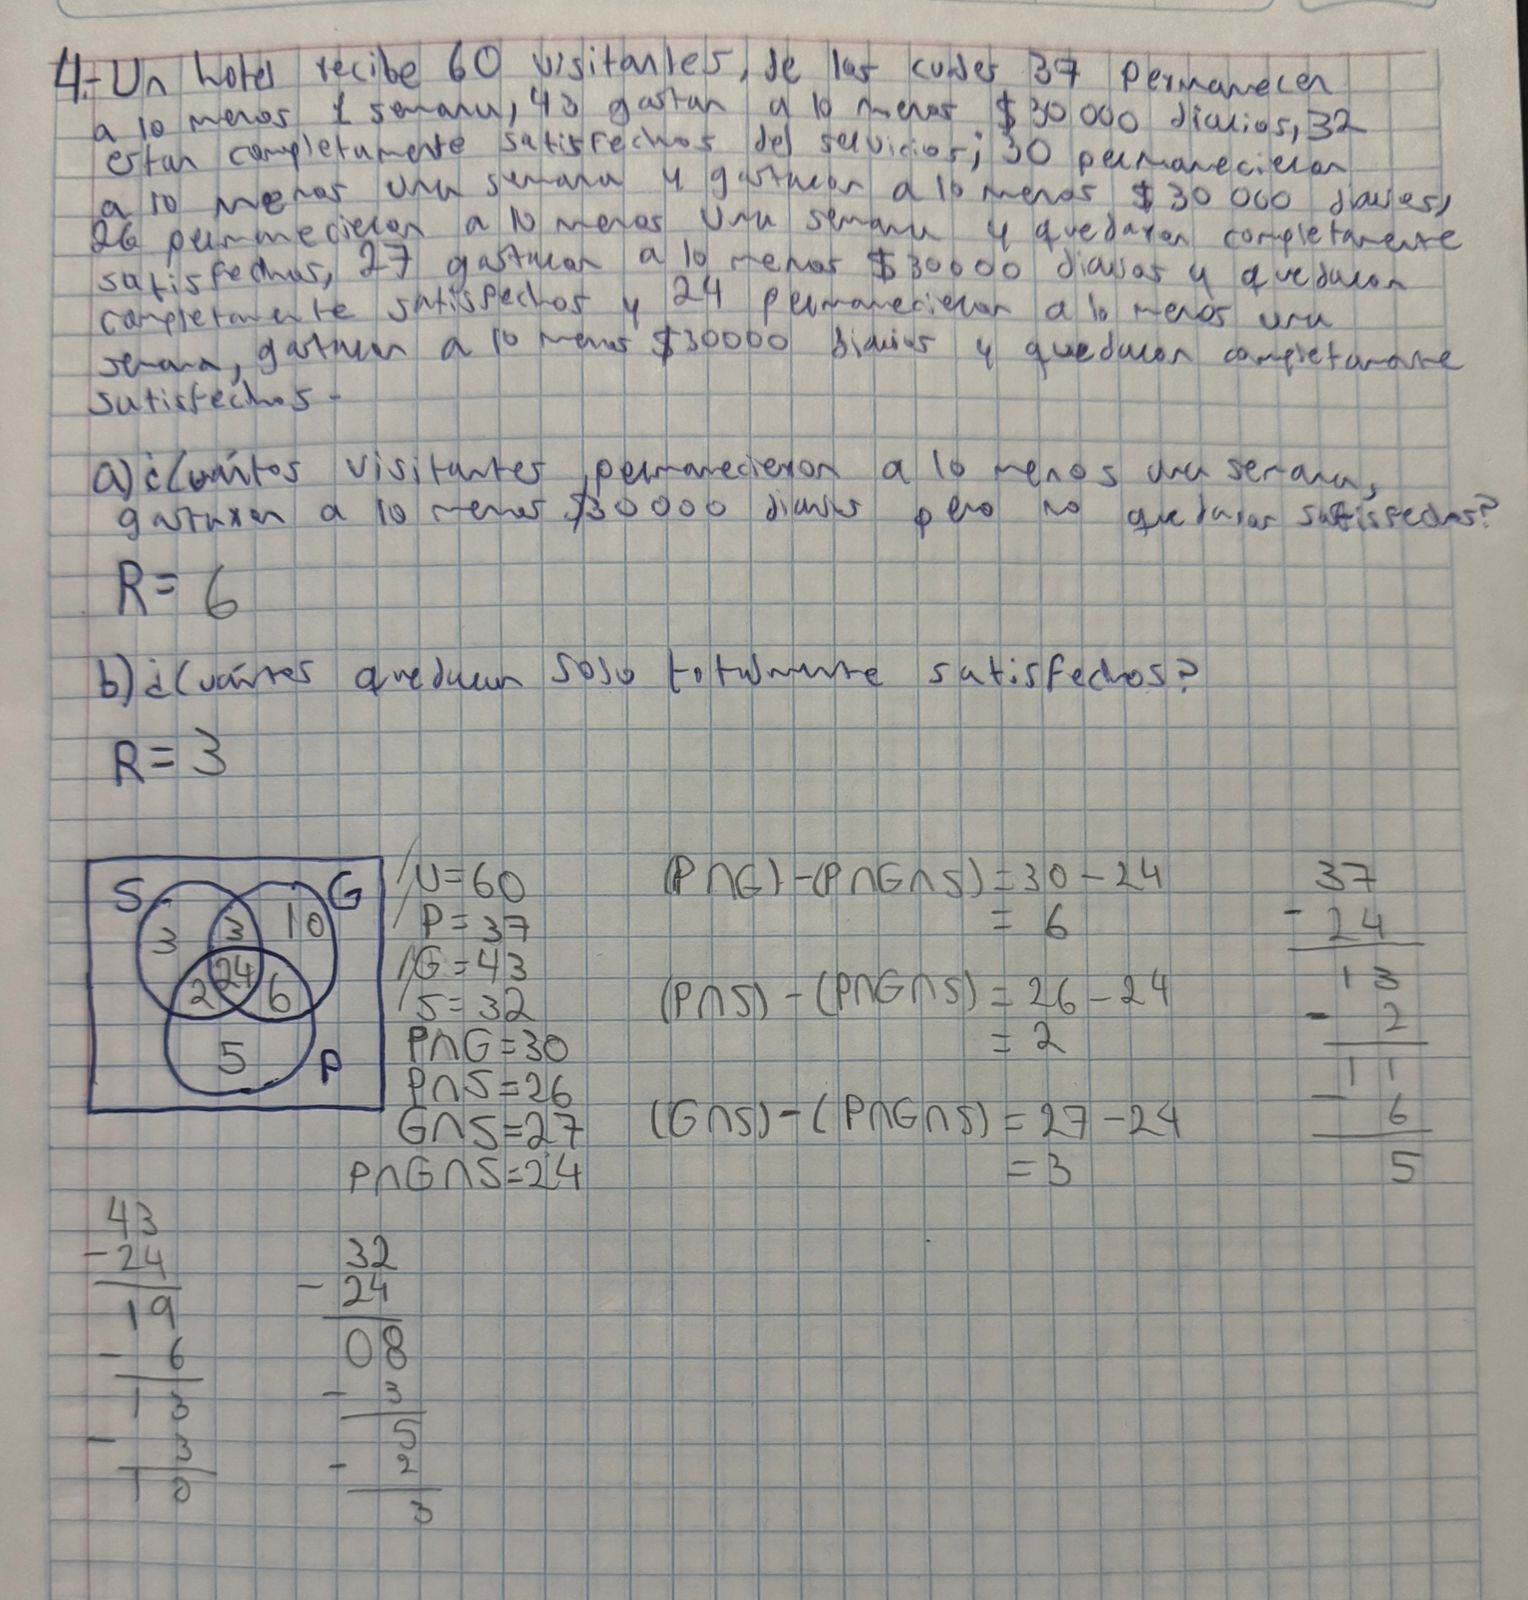 4.- Un hotel recibe 60 visitantes, de las cuales 37 permanecen
a lo menos 1 semana, 43 gastan a lo menos $30 000 diarios, 32
estan completamente satisfechos del servicios; 30 permanecieron
a lo menos una semana y gastaron a lo menos $30 000 diarios,
26 permanecieron a lo menos una semana y quedaron completamente
satisfechos, 27 gastaron a lo menos $30000 diarios y quedaron
completamente satisfechos y 24 permanecieron a lo menos una
semana, gastaron a lo menos $30000 diarios y quedaron completamente
satisfechos.
a) ¿Cuántos visitantes permanecieron a lo menos una semana,
gastaron a lo menos $30000 diarios pero no quedaron satisfechos?
R= 6
b) ¿Cuántos quedaron solo totalmente satisfechos?
R= 3
S G
3 3 10
24
2 6
5 P
U=60
P=37
G=43
S=32
P∩G=30
P∩S=26
G∩S=27
P∩G∩S=24
(P∩G)-(P∩G∩S)=30-24
= 6
(P∩S)-(P∩G∩S)=26-24
= 2
(G∩S)-(P∩G∩S)=27-24
=3
37
- 24
13
- 2
11
- 6
5
43
-24
19
- 6
13
- 3
10
32
- 24
08
- 3
5
- 2
3